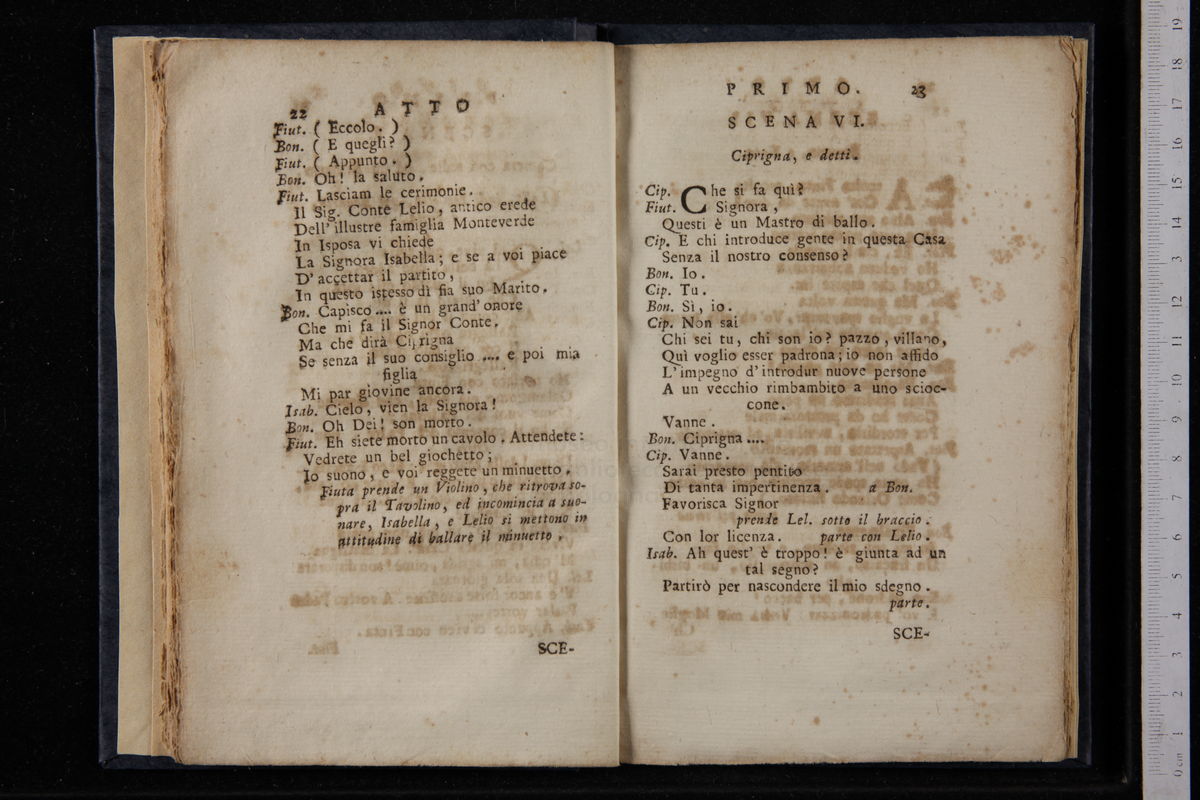 22 ATTO
Fiut. ( Eccolo. )
Bon. ( E quegli? )
Fiut. ( Appunto. )
Bon. Oh! la saluto.
Fiut. Lasciam le cerimonie.
Il Sig. Conte Lelio, antico erede
Dell' illustre famiglia Monteverde
In Isposa vi chiede
La Signora Isabella; e se a voi piace
D' accettar il partito,
In questo istesso dì fia suo Marito.
Bon. Capisco.... è un grand' onore
Che mi fa il Signor Conte.
Ma che dirà Ciprigna
Se senza il suo consiglio .... e poi mia
figlia
Mi par giovine ancora.
Isab. Cielo, vien la Signora!
Bon. Oh Dei! son morto.
Fiut. Eh siete morto un cavolo. Attendete:
Vedrete un bel giochetto;
Io suono, e voi reggete un minuetto.
Fiuta prende un Violino, che ritrova so-
pra il Tavolino, ed incomincia a suo-
nare, Isabella, e Lelio si mettono in
attitudine di ballare il minuetto.
SCE-
PRIMO. 23
SCENA VI.
Ciprigna, e detti.
Cip. Che si fa quì?
Fiut. Signora,
Questi è un Mastro di ballo.
Cip. E chi introduce gente in questa Casa
Senza il nostro consenso?
Bon. Io.
Cip. Tu.
Bon. Sì, io.
Cip. Non sai
Chi sei tu, chi son io? pazzo, villano,
Quì voglio esser padrona; io non affido
L' impegno d' introdur nuove persone
A un vecchio rimbambito a uno scioc-
cone.
Vanne.
Bon. Ciprigna....
Cip. Vanne.
Sarai presto pentito
Di tanta impertinenza. a Bon.
Favorisca Signor
prende Lel. sotto il braccio.
Con lor licenza. parte con Lelio.
Isab. Ah quest' è troppo! è giunta ad un
tal segno?
Partirò per nascondere il mio sdegno.
parte.
SCE-